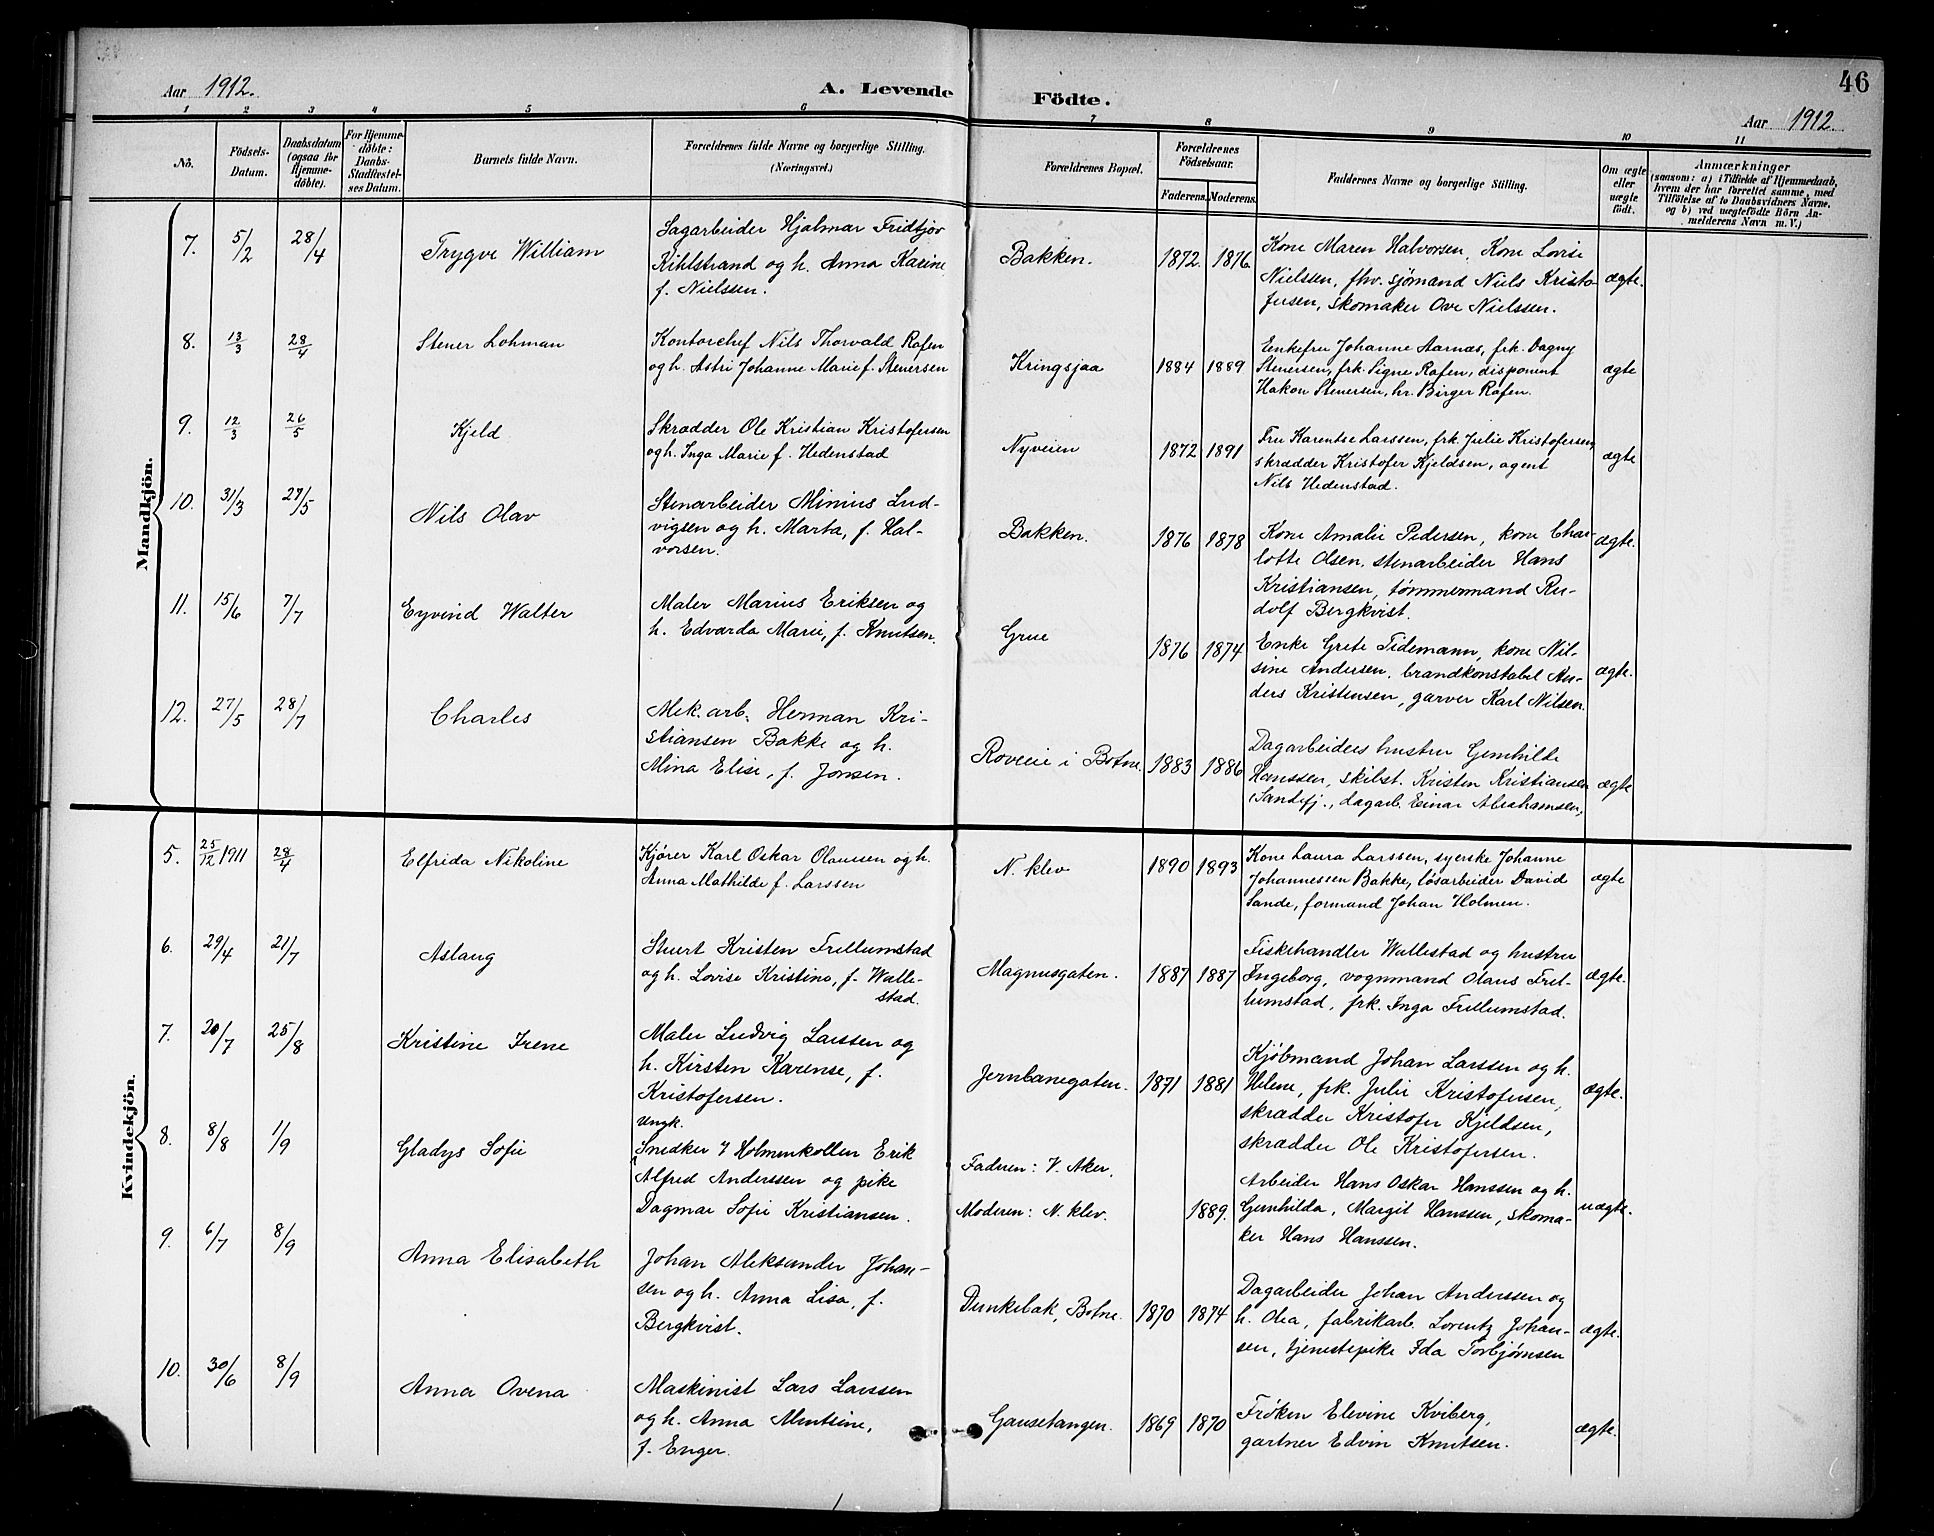 46
Aar 1912. A. Levende Födte. Aar 1912
1 2 3 4 5 6 7 8 9 10 11
Nō. Födsels-Datum. Daabsdatum (ogsaa for Hjemme-döbte). For Hjemme-döbte: Daabs-Stadfæstel-ses Datum. Barnets fulde Navn. Forældrenes fulde Navne og borgerlige Stilling. (Næringsvei.) Forældrenes Bopæl. Forældrenes Födselsaar. Faderens. Moderens. Faddernes Navne og borgerlige Stilling. Om ægte eller uægte födt. Anmærkninger (saasom: a) i Tilfælde af Hjemmedaab, hvem der har forrettet samme, med Tilföielse af to Daabsvidners Navne, og b) ved uægtefödte Börn An-melderens Navn m. V.)
Mandkjön.
7. 5/2 28/4 Trygve William
Sagarbeider Hjalmar Fridtjov
Kihlstrand og h. Anna Karine
f. Nielssen.
Bakken. 1872. 1876
Kone Maren Halvorsen, Kone Lovise
Nielssen, fhv. sjömand Niels Kristo-
fersen, skomaker Ove Nielssen.
ægte.
8. 13/3 28/4 Stener Lohman
Kontorchef Nils Thorvald Rafen
og h. Astri Johanne Marie f. Stenersen
Kringsjaa 1884 1889
Enkefru Johanne Aarnæs, frk. Dagny
Stenersen, frk. Signe Rafen, disponent
Hakon Stenersen, hr. Birger Rafen.
ægte
9. 12/3 26/5 Kjeld
Skrædder Ole Kristian Kristofersen
og h. Inga Marie f. Hedenstad
Nyveien 1872 1891
Fru Karentse Larssen, frk. Julie Kristofersen,
skrædder Kristofer Kjeldsen, agent
Nils Hedenstad.
ægte
10. 31/3 27/5 Nils Olav
Stenarbeider Minius Lud-
vigsen og h. Marta, f. Hal-
vorsen.
Bakken. 1876 1878
Kone Amalie Pedersen, kone Char-
lotte Olsen, stenarbeider Hans
Kristiansen, tømmermand Ru-
dolf Bergkvist.
ægte.
11. 15/6 7/7 Eyvind Walter
Maler Marius Eriksen og
h. Edvarda Marie, f. Knutsen.
Grue 1876 1874
Enke Grete Tidemann, kone Nil-
sine Andersen, brandkonstabel An-
ders Kristensen, garver Karl Nilsen.
ægte.
12. 27/5 28/7 Charles
Mek. arb. Herman Kri-
stiansen Bakke og h.
Mina Elise, f. Jonsen.
Roveie i Botne 1883 1886
Dagarbeiders hustru Gunhilde
Hanssen, skibst. Kristen Kristiansen
Sandefj., dagarb. Einar Abrahamsen,
ægte
Kvindekjön.
5. 25/12 1911 28/4 Elfrida Nikoline
Kjører Karl Oskar Olaussen og h.
Anna Mathilde f. Larssen
N. klev 1890 1893
Kone Laura Larssen, syerske Johanne
Johannessen Bakke, løsarbeider David
Sande, formand Johan Holmen.
ægte
6. 29/4 21/7 Aslaug
Stuert Kristen Frellumstad
og h. Lovise Kristine, f. Walle-
stad.
Magnusgaten. 1887 1887
Fiskehandler Wallestad og hustru
Ingeborg, vognmand Olaus Frel-
lumstad, frk. Inga Frellumstad.
ægte.
7. 20/7 25/8 Kristine Irene
Maler Ludvig Larssen og
h. Kirsten Karense, f.
Kristofersen.
Jernbanegaten. 1871 1881
Kjøbmand Johan Larssen og h.
Helene, frk. Julie Kristofersen,
skrædder Kristofer Kjeldsen,
skrædder Ole Kristofersen.
ægte.
8. 8/8 1/9 Gladys Sofie
Ungk.
Snedker i Holmenkollen Erik
Alfred Anderssen og pike
Dagmar Sofie Kristiansen.
Faderen: V. Aker.
Moderen: N. klev. 1889.
Arbeider Hans Oskar Hanssen og h.
Gunhilda, Margit Hanssen, skoma-
ker Hans Hanssen.
uægte.
9. 6/7 8/9 Anna Elisabeth
Johan Aleksander Johan-
sen og h. Anna Lisa, f.
Bergkvist.
Dunkebæk, Botne. 1870 1874
Dagarbeider Johan Anderssen og
h. Olea, fabrikarb. Lorentz Johan-
sen, tjenestepike Ida Torbjørnsen
ægte.
10. 30/6 8/9 Anna Ovena
Maskinist Lars Larssen
og h. Anna Mentsine,
f. Enger.
Gausetangen. 1869 1870
Frøken Elevine Kviberg,
gartner Edvin Knutsen.
ægte.